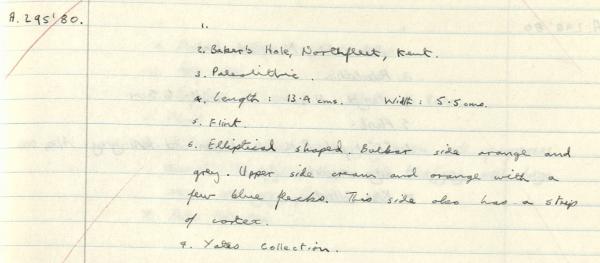 A.295'80.
1.
2. Baker's Hole, Northfleet, Kent.
3. Paleolithic.
4. Length: 13.4 cms. Width: 5.5 cms.
5. Flint.
6. Elliptical shaped. Bulbar side orange and
grey. Upper side cream and orange with a
few blue flecks. This side also has a strip
of cortex.
9. Yates Collection.